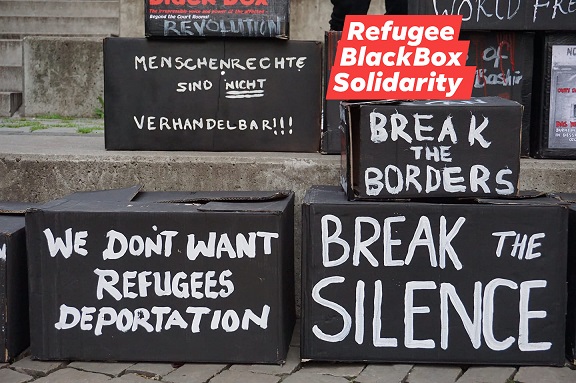 BLACK BOX
Beyond the Court Rooms!
REVOLUTION
WORLD FREE
Refugee
BlackBox
Solidarity
MENSCHENRECHTE
SIND NICHT
VERHANDELBAR!!!
OF
BREAK
THE
BORDERS
WE DON'T WANT
REFUGEES
DEPORTATION
BREAK THE
SILENCE